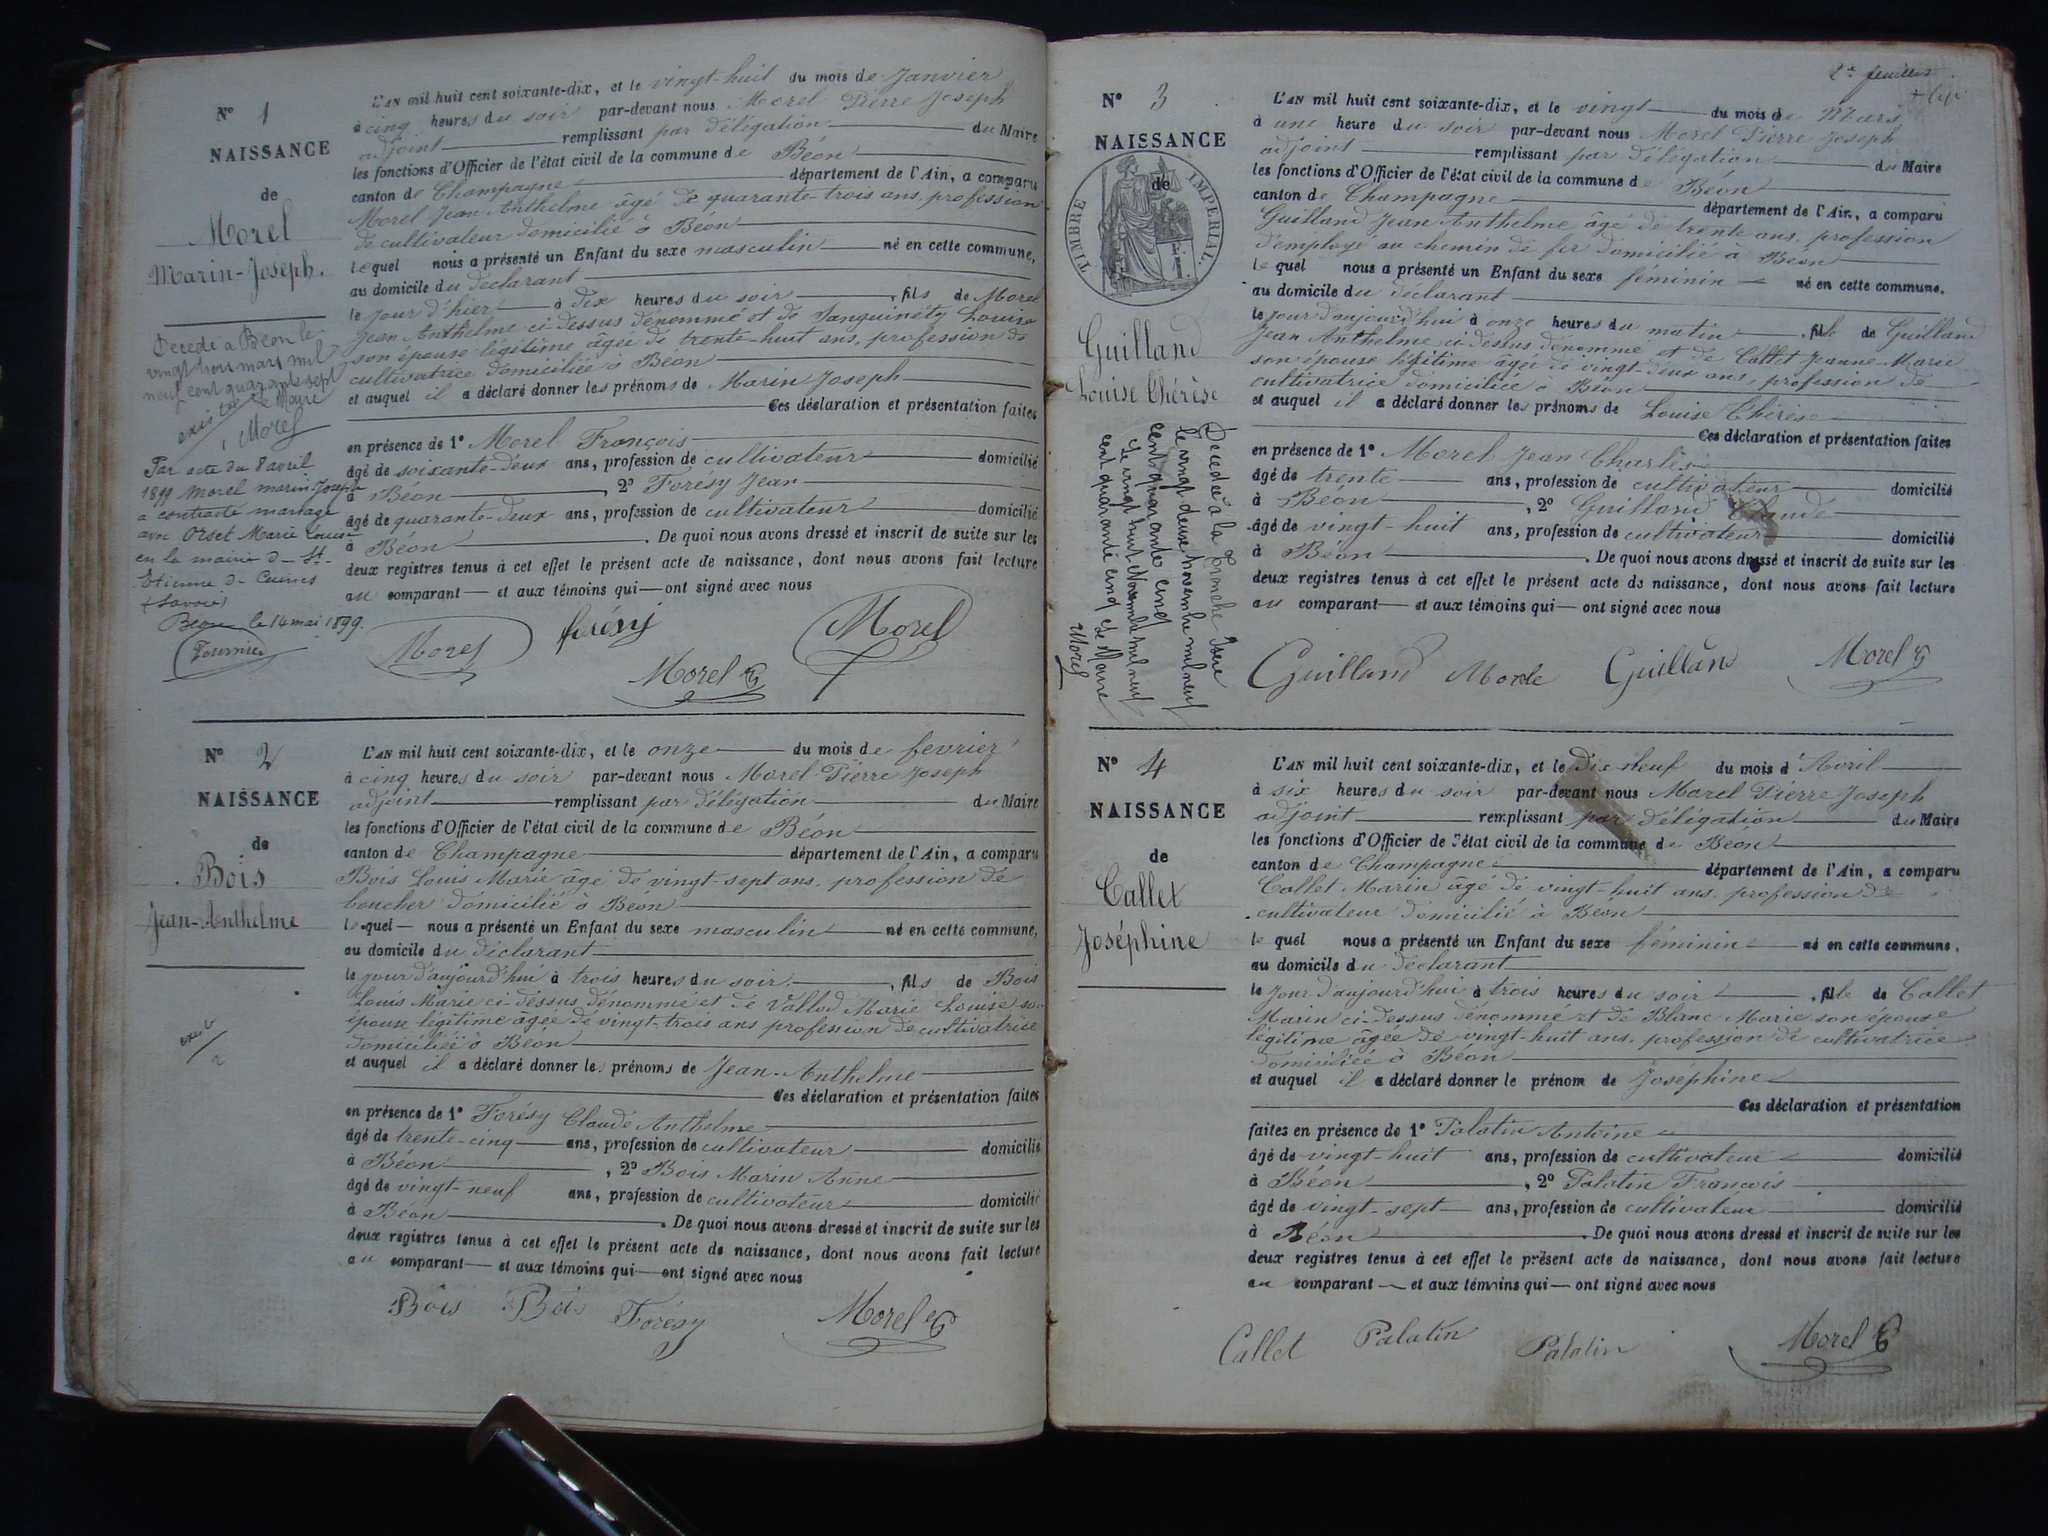 N° 1
NAISSANCE
de
Morel
Marin-Joseph.
Décédé à Béon le
vingt trois mars mil
neuf cent quarante sept
Le Maire
Morel
Par acte du 8 avril
1899 Morel Marin Joseph
a contracté mariage
avec Orset Marie Louise
en la mairie de St-
Etienne de Cuines
(Savoie)
Béon le 14 mai 1899.
Fournier
L'AN mil huit cent soixante-dix, et le vingt-huit du mois de Janvier
à cinq heures du soir par-devant nous Morel Pierre Joseph
adjoint remplissant par délégation du Maire
les fonctions d'Officier de l'état civil de la commune de Béon
canton de Champagne département de l'Ain, a comparu
Morel Jean Anthelme âgé de quarante-trois ans, profession
de cultivateur domicilié à Béon
lequel nous a présenté un Enfant du sexe masculin né en cette commune,
au domicile du déclarant
le jour d'hier à dix heures du soir, fils de Morel
Jean Anthelme ci-dessus dénommé et de Sanguinéty Louise
son épouse légitime âgée de trente-huit ans, profession de
cultivatrice domiciliée à Béon
et auquel il a déclaré donner les prénoms de Marin Joseph
Ces déclaration et présentation faites
en présence de 1° Morel François
âgé de soixante-deux ans, profession de cultivateur domicilié
à Béon, 2° Forésy Jean
âgé de quarante-deux ans, profession de cultivateur domicilié
à Béon. De quoi nous avons dressé et inscrit de suite sur les
deux registres tenus à cet effet le présent acte de naissance, dont nous avons fait lecture
au comparant et aux témoins qui ont signé avec nous
Morel forésy Morel
Morel
N° 2
NAISSANCE
de
Bois
Jean-Anthelme
L'AN mil huit cent soixante-dix, et le onze du mois de février
à cinq heures du soir par-devant nous Morel Pierre Joseph
adjoint remplissant par délégation du Maire
les fonctions d'Officier de l'état civil de la commune de Béon
canton de Champagne département de l'Ain, a comparu
Bois Louis Marie âgé de vingt-sept ans, profession de
boucher domicilié à Béon
lequel nous a présenté un Enfant du sexe masculin né en cette commune,
au domicile du déclarant
le jour d'aujourd'hui à trois heures du soir, fils de Bois
Louis Marie ci-dessus dénommé et de Vallod Marie Louise son
épouse légitime âgée de vingt-trois ans profession de cultivatrice
domiciliée à Béon
et auquel il a déclaré donner les prénoms de Jean-Anthelme
Ces déclaration et présentation faites
en présence de 1° Forésy Claude Anthelme
âgé de trente-cinq ans, profession de cultivateur domicilié
à Béon, 2° Bois Marin Anne
âgé de vingt-neuf ans, profession de cultivateur domicilié
à Béon. De quoi nous avons dressé et inscrit de suite sur les
deux registres tenus à cet effet le présent acte de naissance, dont nous avons fait lecture
au comparant et aux témoins qui ont signé avec nous
Bois Bois Forésy Morel
2e feuillet
N° 3
NAISSANCE
de
TIMBRE IMPERIAL.
Guilland
Louise Thérèse
Décédée à la Tronche Isère
le vingt deux novembre mil neuf
cent quarante cinq
Le vingt huit Novembre mil neuf
cent quarante cinq Le Maire
Morel
L'AN mil huit cent soixante-dix, et le vingt du mois de Mars
à une heure du soir par-devant nous Morel Pierre Joseph
adjoint remplissant par délégation du Maire
les fonctions d'Officier de l'état civil de la commune de Béon
canton de Champagne département de l'Ain, a comparu
Guilland Jean Anthelme âgé de trente ans, profession
d'employé au chemin de fer domicilié à Béon
lequel nous a présenté un Enfant du sexe féminin né en cette commune.
au domicile du déclarant
le jour d'aujourd'hui à onze heures du matin, fille de Guilland
Jean Anthelme ci-dessus dénommé et de Callet Jeanne Marie
son épouse légitime âgée de vingt-deux ans, profession de
cultivatrice domiciliée à Béon
et auquel il a déclaré donner les prénoms de Louise Thérèse
Ces déclaration et présentation faites
en présence de 1° Morel Jean Charles
âgé de trente ans, profession de cultivateur domicilié
à Béon, 2° Guilland Claude
âgé de vingt-huit ans, profession de cultivateur domicilié
à Béon. De quoi nous avons dressé et inscrit de suite sur les
deux registres tenus à cet effet le présent acte de naissance, dont nous avons fait lecture
au comparant et aux témoins qui ont signé avec nous
Guilland Guilland Morel
N° 4
NAISSANCE
de
Callet
Joséphine
L'AN mil huit cent soixante-dix, et le dix-neuf du mois d'Avril
à six heures du soir par-devant nous Morel Pierre Joseph
adjoint remplissant par délégation du Maire
les fonctions d'Officier de l'état civil de la commune de Béon
canton de Champagne département de l'Ain, a comparu
Callet Marin âgé de vingt-huit ans, profession de
cultivateur domicilié à Béon
lequel nous a présenté un Enfant du sexe féminin né en cette commune,
au domicile du déclarant
le jour d'aujourd'hui à trois heures du soir, fille de Callet
Marin ci-dessus dénommé et de Blanc Marie son épouse
légitime âgée de vingt-huit ans, profession de cultivatrice
domiciliée à Béon
et auquel il a déclaré donner le prénom de Joséphine
Ces déclaration et présentation
faites en présence de 1° Palatin Antoine
âgé de vingt-huit ans, profession de cultivateur domicilié
à Béon, 2° Palatin François
âgé de vingt-sept ans, profession de cultivateur domicilié
à Béon. De quoi nous avons dressé et inscrit de suite sur les
deux registres tenus à cet effet le présent acte de naissance, dont nous avons fait lecture
au comparant et aux témoins qui ont signé avec nous
Callet Palatin Palatin Morel